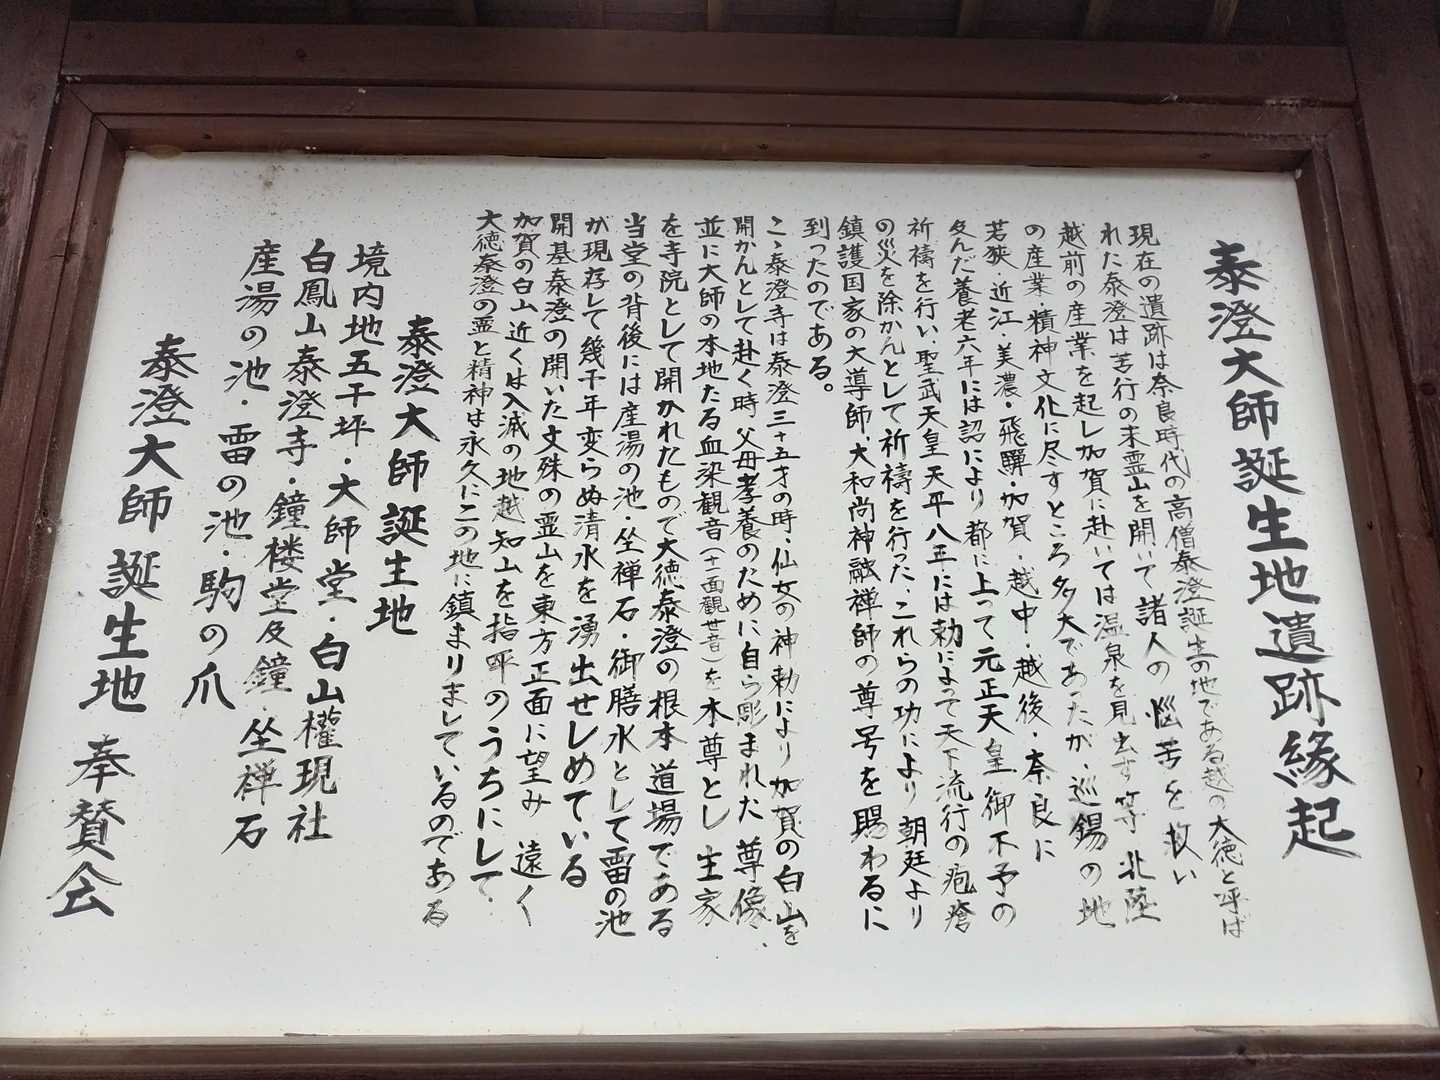 泰澄大師誕生地遺跡縁起
現在の遺跡は奈良時代の高僧泰澄誕生の地である越の大徳と呼ば
れた泰澄は苦行の末霊山を開いて諸人の悩苦を救い
越前の産業を起し加賀に赴いては温泉を見出す等北陸
の産業・精神文化に尽すところ多大であったが、巡錫の地
若狭・近江・美濃・飛騨・加賀・越中・越後・奈良に
及んだ養老六年には詔により都に上って元正天皇御不予の
祈祷を行い、聖武天皇天平八年には勅によって天下流行の疱瘡
の災を除かんとして祈祷を行った、これらの功により朝廷より
鎮護国家の大導師、大和尚神融禅師の尊号を賜わるに
到ったのである。
こゝ泰澄寺は泰澄三十五才の時・仙女の神勅により加賀の白山を
開かんとして赴く時父母孝養のために自ら彫まれた尊像、
並に大師の本地たる血染観音(十一面観世音)を本尊とし生家
を寺院として開かれたもので大徳泰澄の根本道場である
当堂の背後には産湯の池・坐禅石・御膳水として雷の池
が現存して幾千年変らぬ清水を湧出せしめている
開基泰澄の開いた文殊の霊山を東方正面に望み 遠く
加賀の白山近くは入滅の地越知山を指呼のうちにして、
大徳泰澄の霊と精神は永久にこの地に鎮まりましているのである
泰澄大師誕生地
境内地五千坪・大師堂・白山權現社
白鳳山泰澄寺・鐘楼堂及鐘・坐禅石
産湯の池・雷の池・駒の爪
泰澄大師誕生地 奉賛会